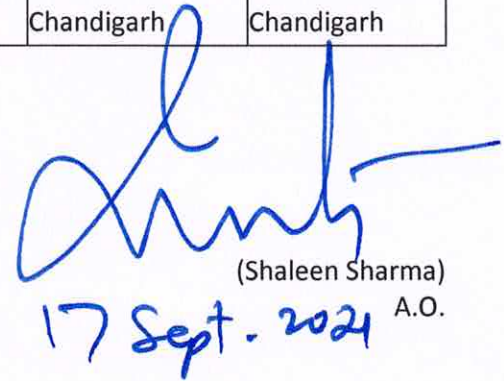 Chandigarh Chandigarh
(Shaleen Sharma)
A.O.
17 Sept. 2021